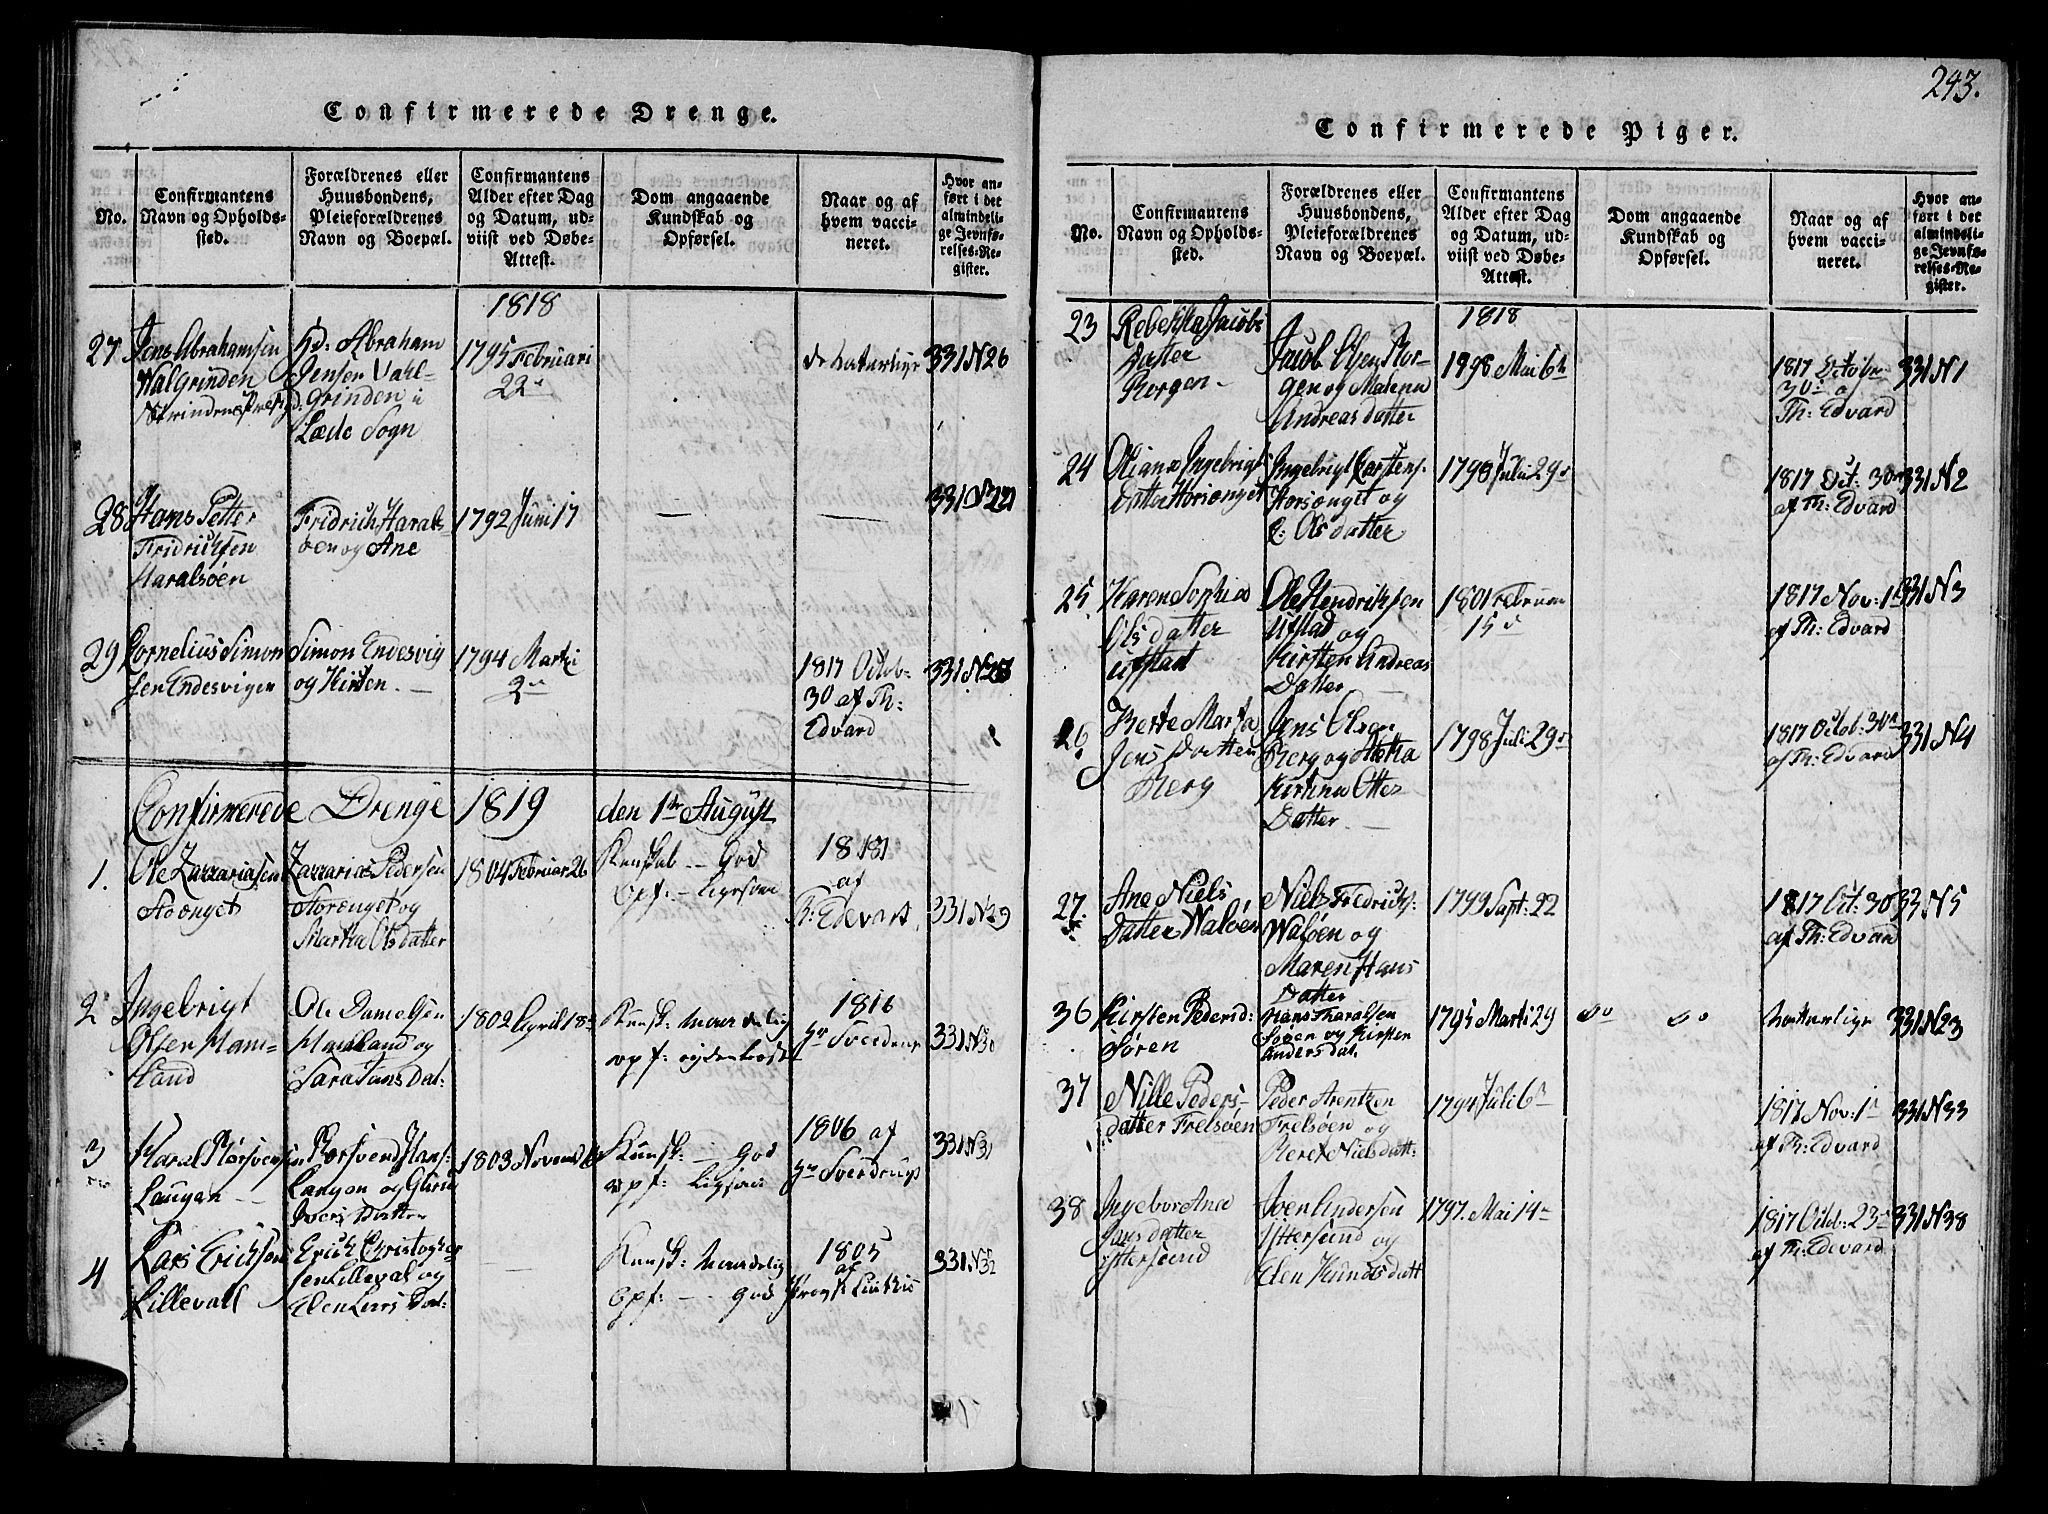 243.
Confirmerede Drenge.
No.
Confirmantens
Navn og Opholds-
sted.
Forældrenes eller
Huusbondens,
Pleieforældrenes
Navn og Boepæl.
Confirmantens
Alder efter Dag
og Datum, ud-
viist ved Døbe-
Attest.
Dom angaaende
Kundskab og
Opførsel.
Naar og af
hvem vacci-
neret.
Hvor an-
ført i det
almindeli-
ge Jevnfø-
relses-Re-
gister.
1818
27 Jens Abrahamsen
Walgrinden
Abraham
Jensen Vahl-
grinden i
Læde Sogn
1795 Februari
22
331 N 26
28 Hans Petter
Fridrichsen
Haralsøen
Fridrich Harals
øen og Ane
1792 Juni 17
—
—
29 Cornelius Simon
sen Endesvigen
Simon Endesvig
og Kirsten. —
1794 Marti
2
1817 Octob:
30 af Th:
Edvard
Confirmerede Drenge 1819 den 1te August
1. Ole Zarrariasen
Zarrarias Pedersen
Storenget og
Martha Olsdatter
1804 Februar 26
Kunskab — God
Opf: —
af
Th: Edevart
331 N 29
2 Ingebrigt
Olsen Ham=
land
Ole Danielsen
Hamland og
Sara Jans Dat:
1802 April 18
Kunsk: maadelig
opf:
1816
Hr Sverdrup
331 N 30
3 Haral
Laugen —
Langen og
Ivers Datter
1803 Novemb
Kunsk: — God
opf:
1806 af
Hr Sverdrup
331 N 31
4 Lars Erichsen
Lillevall
Erich Christopher
sen Lilleval og
Elen Lars Dat:
—
Kunsk: maadelig
opf: — God
1805
af
331 N 32
Confirmerede Piger.
No.
Confirmantens
Navn og Opholds-
sted.
Forældrenes eller
Huusbondens,
Pleieforældrenes
Navn og Boepæl.
Confirmantens
Alder efter Dag
og Datum, ud-
viist ved Døbe-
Attest.
Dom angaaende
Kundskab og
Opførsel.
Naar og af
hvem vacci-
neret.
Hvor an-
ført i det
almindeli-
ge Jevnfø-
relses-Re-
gister.
1818
23 Rebekka Jacobs
Datter
Borgen —
Jacob Olsen Bor-
gen og Malena
Andreas datter
1798 Mai 6te
1817 Octobr
30 af
Th: Edvard
331 N 1
24 Oliana Ingebrigts
datter Horsenget
Ingebrigt Carstens.
Horsenget og
Olsdatter
1798 Juli 29
1817 Oct: 30
af Th: Edvard
331 N 2
25. Karen Sophia
Olsdatter
Ufstad
Ole Hendrichsen
Ufstad og
Kirsten Andreas
Datter —
1801 Februari
15
1817 Nov: 1
af Th: Edvard
331 N 3
26 Berte Marta
Jens Datter
Berg
Jens Olsen
Berg og
Kirstina Ottes
Datter —
1798 Juli 29
1817 Octob: 30
af Th: Edvard
331 N 4
27. Ane Niels
Datter Waløen
Niels Fredrichs:
Waløen og
Maren Hans
Datter
1799 Sept: 22
1817 Oct: 30
af Th: Edvard
33 N 5
36 Kirsten Pedersd:
Søren
Søren og Kirsten
Anders dat.
1795 Marti 29
do
do
Naturlige
331 N 23
37 Nille Peders-
datter Frelsøen
Peder Arentzen
Frelsøen og
Beret Niels datt:
1794 Juli 6
1817 Nov: 1
af Th: Edvard
331 N 33
38 Ingebor Ana
datter
Ittersund
Joen Andersen
Ittersund og
Elen Knuds datt
1797. Mai 14
1817 Octob: 23
af Th: Edvard
331 N 38